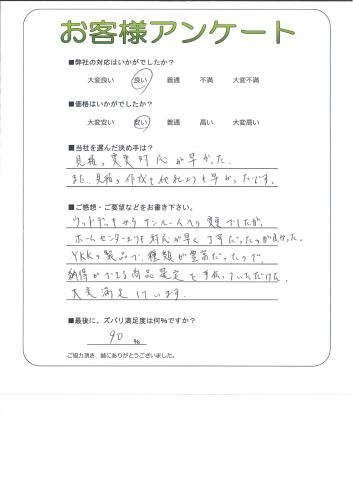 お客様アンケート
■弊社の対応はいかがでしたか?
大変良い 良い 普通 不満 大変不満
■価格はいかがでしたか?
大変安い 安い 普通 高い 大変高い
■当社を選んだ決め手は?
見積の変更対応が早かった.
また、見積の作成も他社よりも早かったです。
■ご感想・ご要望などをお書き下さい。
ウッドデッキからサンルームへの変更でしたが、
ホームセンターよりも対応が早く丁寧だったのが良かった。
YKKの製品で、種類が豊富だったので、
納得ができる商品選定を手伝っていただけた。
大変満足しています.
■最後に、ズバリ満足度は何%ですか?
90 %
ご協力頂き、誠にありがとうございました。